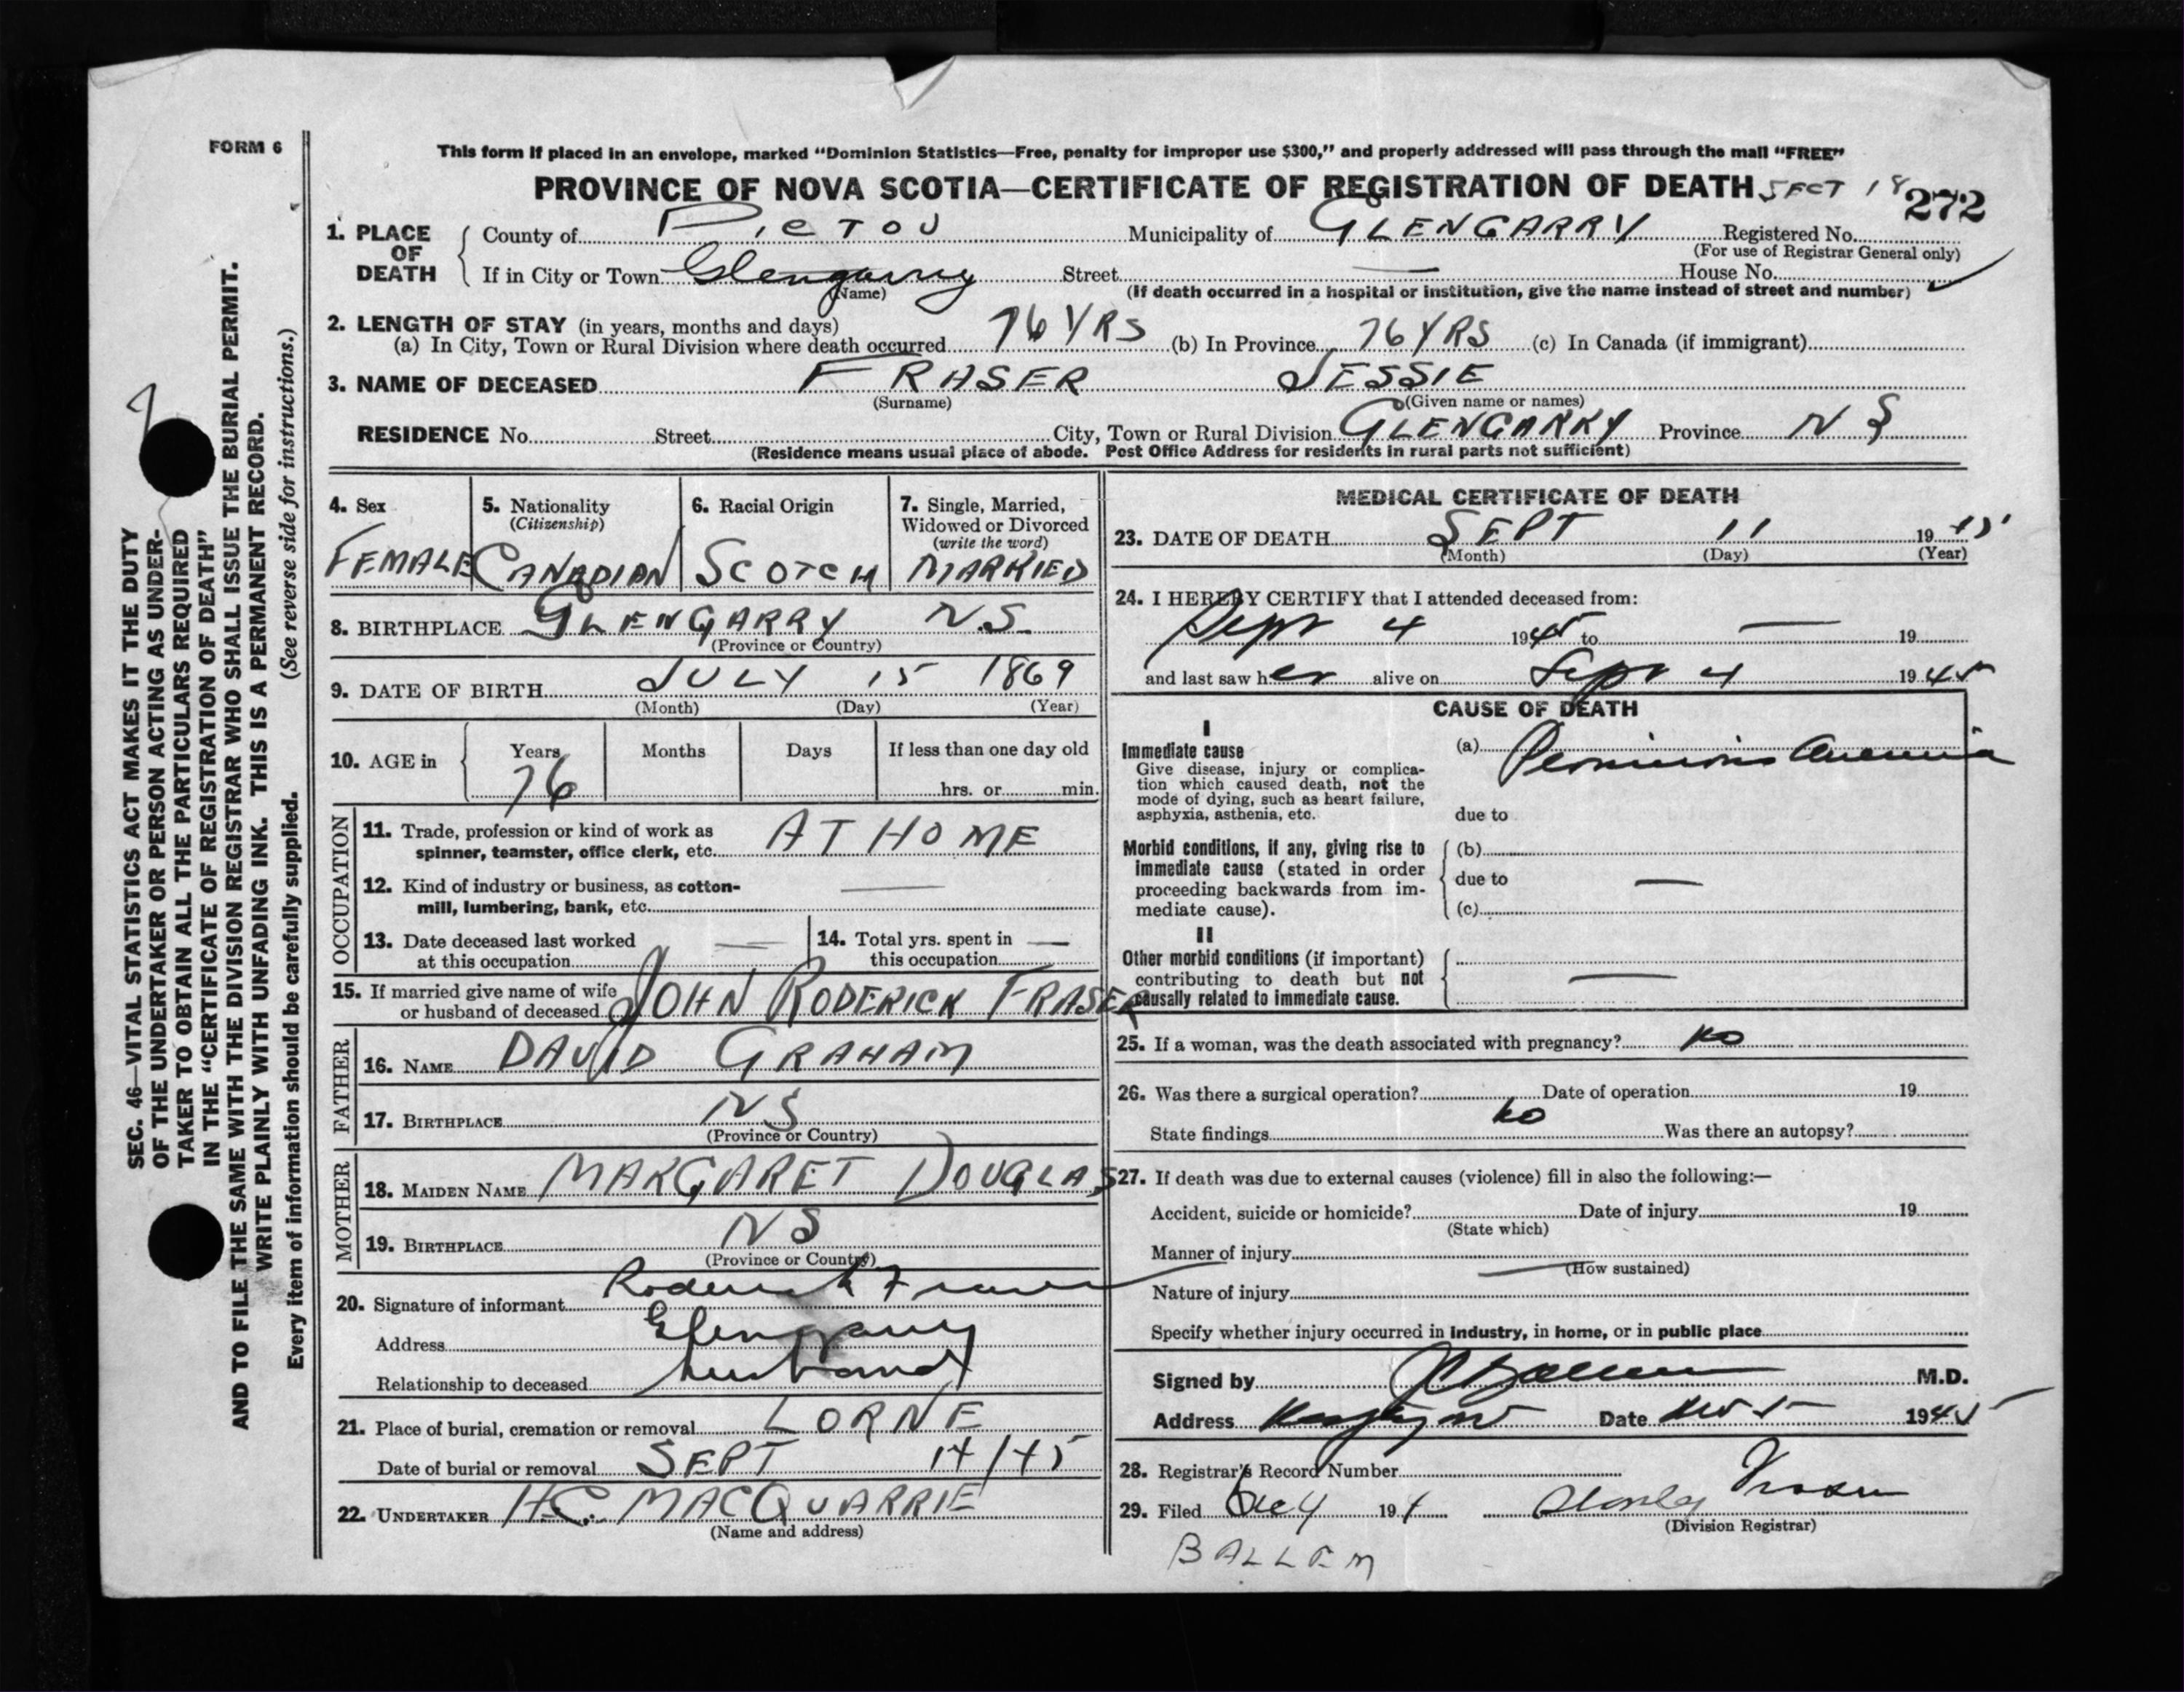 FORM 6
This form if placed in an envelope, marked "Dominion Statistics—Free, penalty for improper use $300," and properly addressed will pass through the mail "FREE"
PROVINCE OF NOVA SCOTIA—CERTIFICATE OF REGISTRATION OF DEATH SECT 18 272
1. PLACE OF DEATH County of PICTOU Municipality of GLENGARRY Registered No.
(For use of Registrar General only)
If in City or Town Glengarry Street — House No.
(Name) (If death occurred in a hospital or institution, give the name instead of street and number)
2. LENGTH OF STAY (in years, months and days)
(a) In City, Town or Rural Division where death occurred 76 YRS (b) In Province 76 YRS (c) In Canada (if immigrant)
3. NAME OF DECEASED FRASER JESSIE
(Surname) (Given name or names)
RESIDENCE No. Street City, Town or Rural Division GLENGARRY Province N S
(Residence means usual place of abode. Post Office Address for residents in rural parts not sufficient)
4. Sex FEMALE
5. Nationality (Citizenship) CANADIAN
6. Racial Origin SCOTCH
7. Single, Married, Widowed or Divorced (write the word) MARRIED
8. BIRTHPLACE GLENGARRY N.S.
(Province or Country)
9. DATE OF BIRTH JULY 15 1869
(Month) (Day) (Year)
10. AGE in Years Months Days If less than one day old
76 hrs. or min.
OCCUPATION
11. Trade, profession or kind of work as
spinner, teamster, office clerk, etc. AT HOME
12. Kind of industry or business, as cotton-
mill, lumbering, bank, etc. —
13. Date deceased last worked
at this occupation —
14. Total yrs. spent in
this occupation —
15. If married give name of wife
or husband of deceased JOHN RODERICK FRASER
FATHER
16. NAME DAVID GRAHAM
17. BIRTHPLACE NS
(Province or Country)
MOTHER
18. MAIDEN NAME MARGARET DOUGLAS
19. BIRTHPLACE NS
(Province or Country)
20. Signature of informant Roderick Fraser
Address Glengarry
Relationship to deceased husband
21. Place of burial, cremation or removal LORNE
Date of burial or removal SEPT 14/45
22. UNDERTAKER H.C. MACQUARRIE
(Name and address)
MEDICAL CERTIFICATE OF DEATH
23. DATE OF DEATH SEPT 11 19 45
(Month) (Day) (Year)
24. I HEREBY CERTIFY that I attended deceased from:
Sept 4 1945 to — 19
and last saw her alive on Sept 4 1945
CAUSE OF DEATH
I
Immediate cause
Give disease, injury or complica-
tion which caused death, not the
mode of dying, such as heart failure,
asphyxia, asthenia, etc.
(a) Pernicious Anemia
due to
Morbid conditions, if any, giving rise to
immediate cause (stated in order
proceeding backwards from im-
mediate cause).
(b)
due to —
(c)
II
Other morbid conditions (if important)
contributing to death but not
causally related to immediate cause.
—
25. If a woman, was the death associated with pregnancy? no
26. Was there a surgical operation? Date of operation 19
no
State findings Was there an autopsy?
27. If death was due to external causes (violence) fill in also the following:—
Accident, suicide or homicide? Date of injury 19
(State which)
Manner of injury
(How sustained)
Nature of injury
Specify whether injury occurred in industry, in home, or in public place
Signed by M.D.
Address Date 1945
28. Registrar's Record Number
29. Filed 194 Stanley Fraser
(Division Registrar)
BALLEM
SEC. 46—VITAL STATISTICS ACT MAKES IT THE DUTY
OF THE UNDERTAKER OR PERSON ACTING AS UNDER-
TAKER TO OBTAIN ALL THE PARTICULARS REQUIRED
IN THE "CERTIFICATE OF REGISTRATION OF DEATH"
AND TO FILE THE SAME WITH THE DIVISION REGISTRAR WHO SHALL ISSUE THE BURIAL PERMIT.
WRITE PLAINLY WITH UNFADING INK. THIS IS A PERMANENT RECORD.
Every item of information should be carefully supplied. (See reverse side for instructions.)